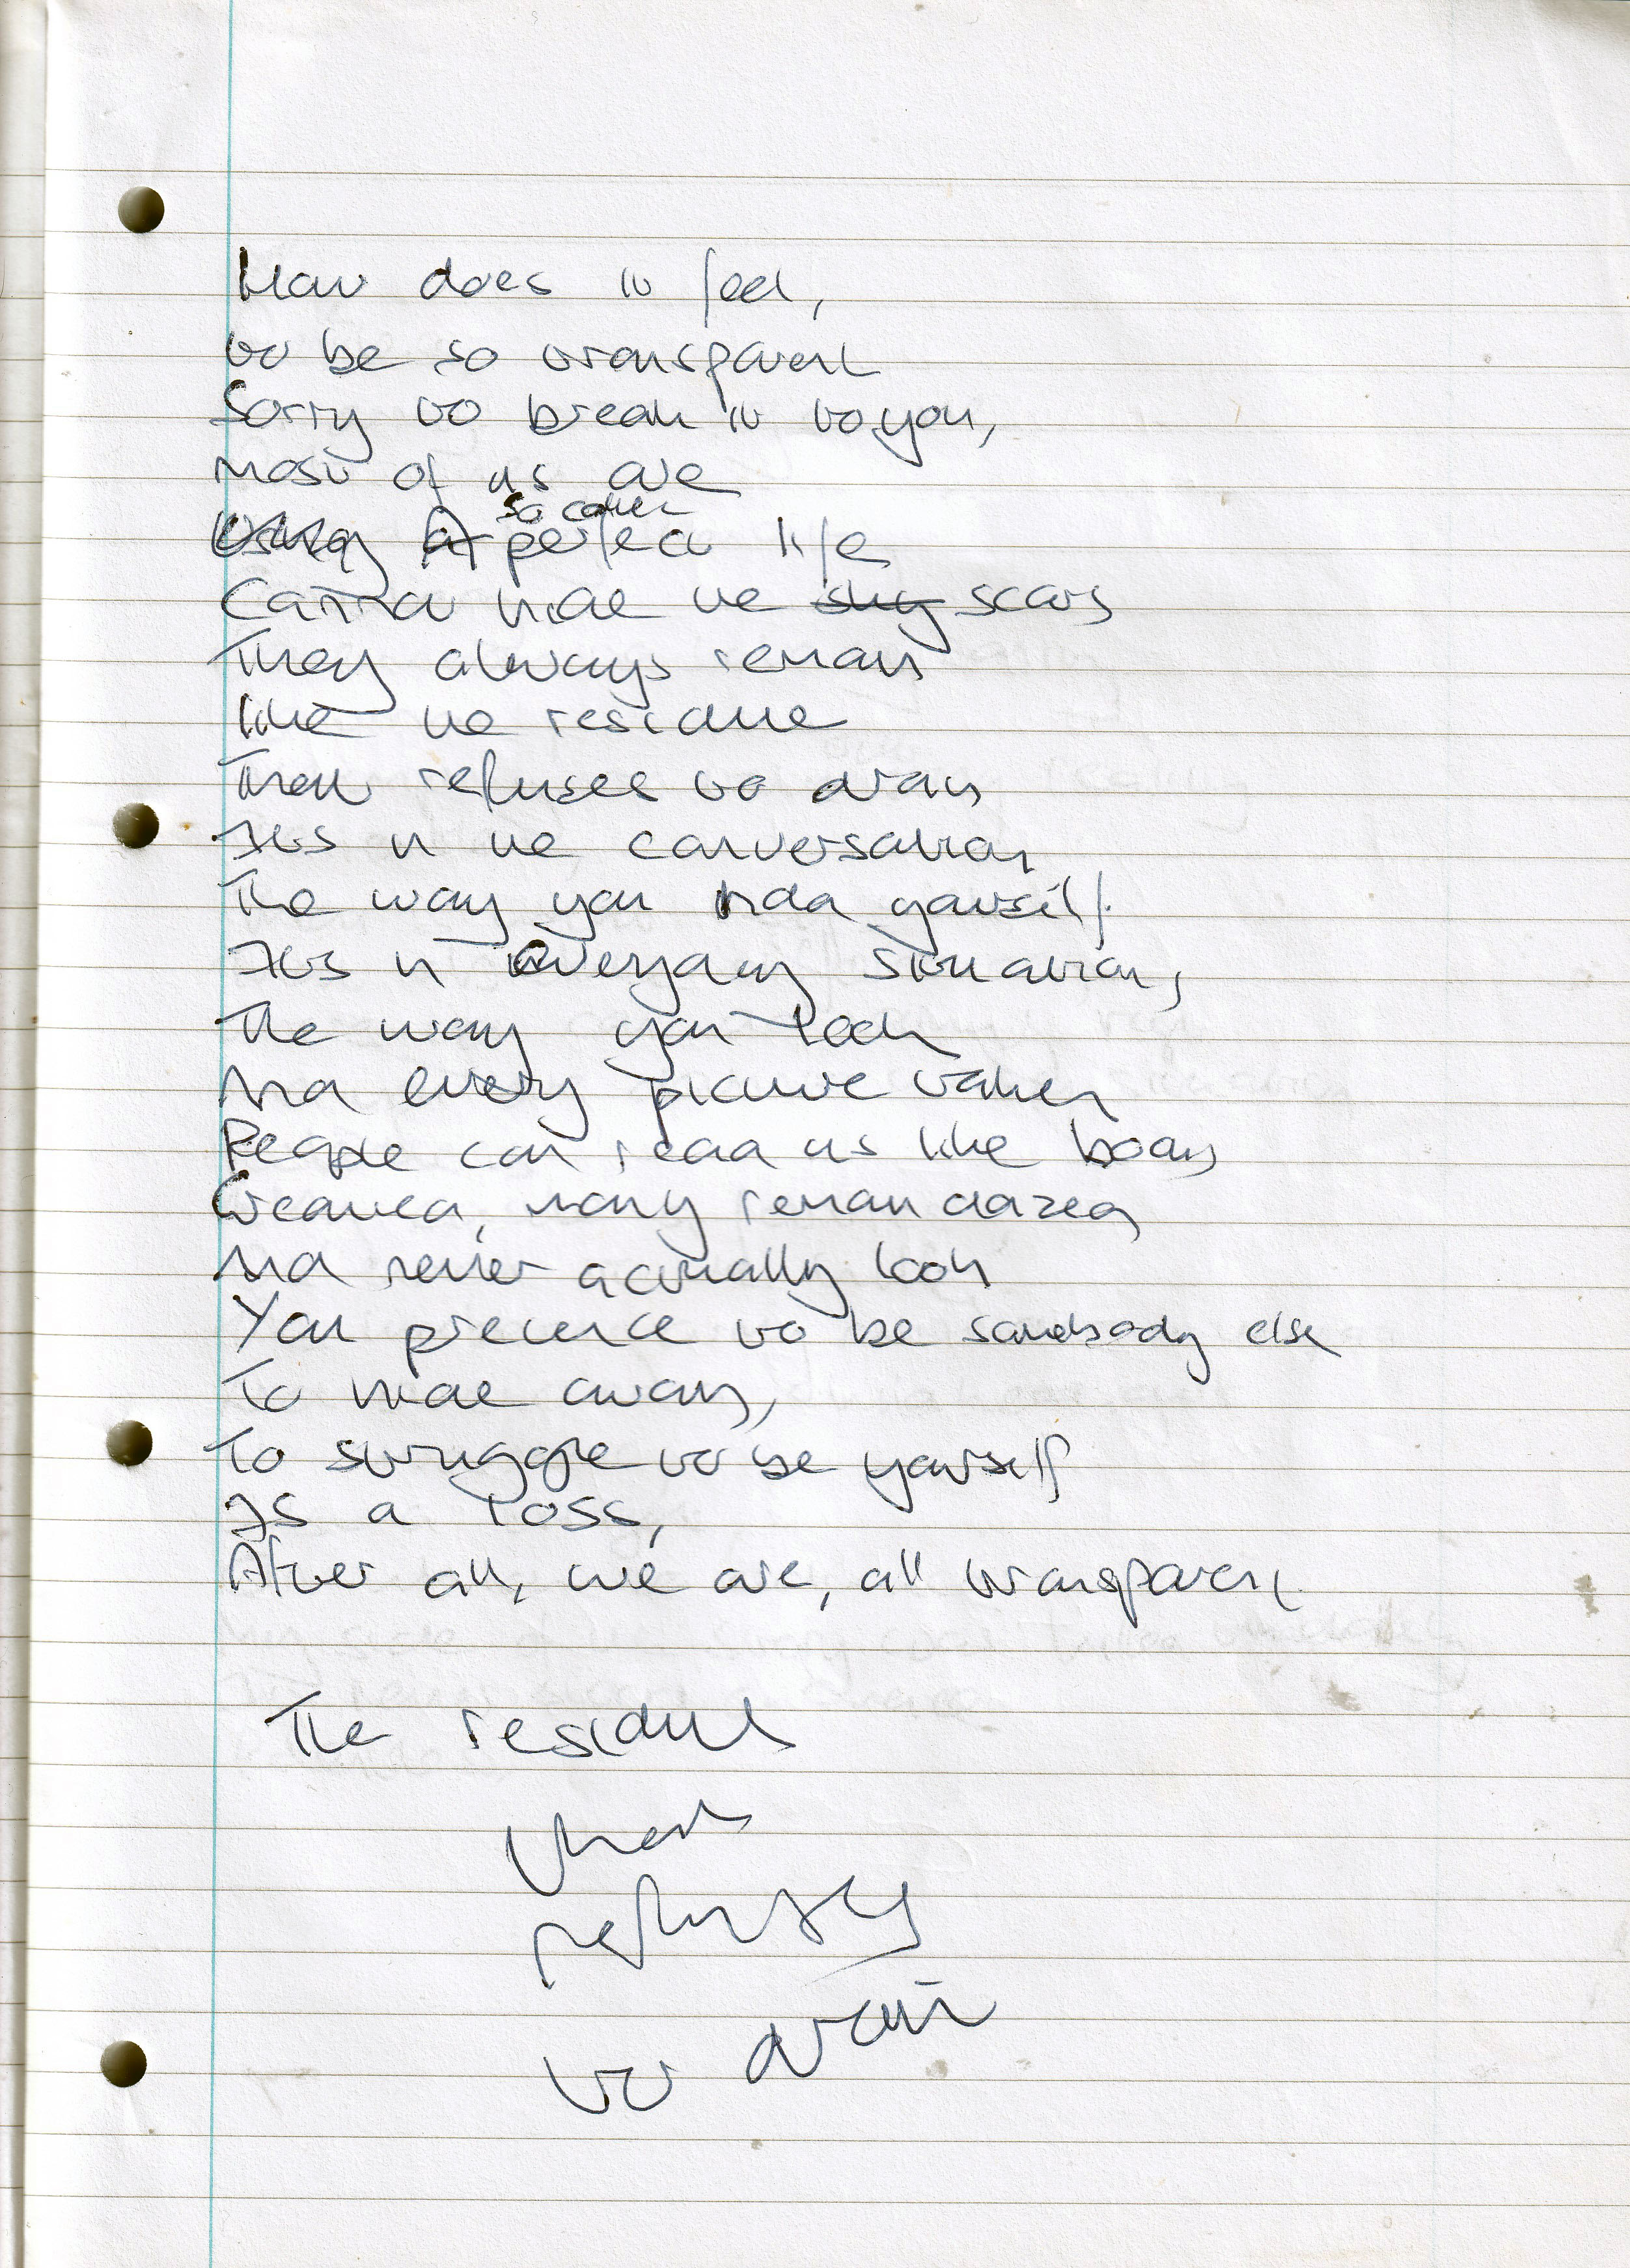 How does it feel,
to be so transparent
Sorry to break it to you,
most of us are
so called
perfect life
Cannot hide the scars
They always remain
like the residue
That refuses to drain
Its in the conversation
The way you hold yourself.
Its in everyday situation,
The way you look
And every picture taken
People can read us like books
Greatved, many remain dazed
And never actually look
You pretence to be somebody else
To hide away,
To struggle to be yourself
Is a loss,
After all, we are, all transparent.
The residue
that
refuses
to drain